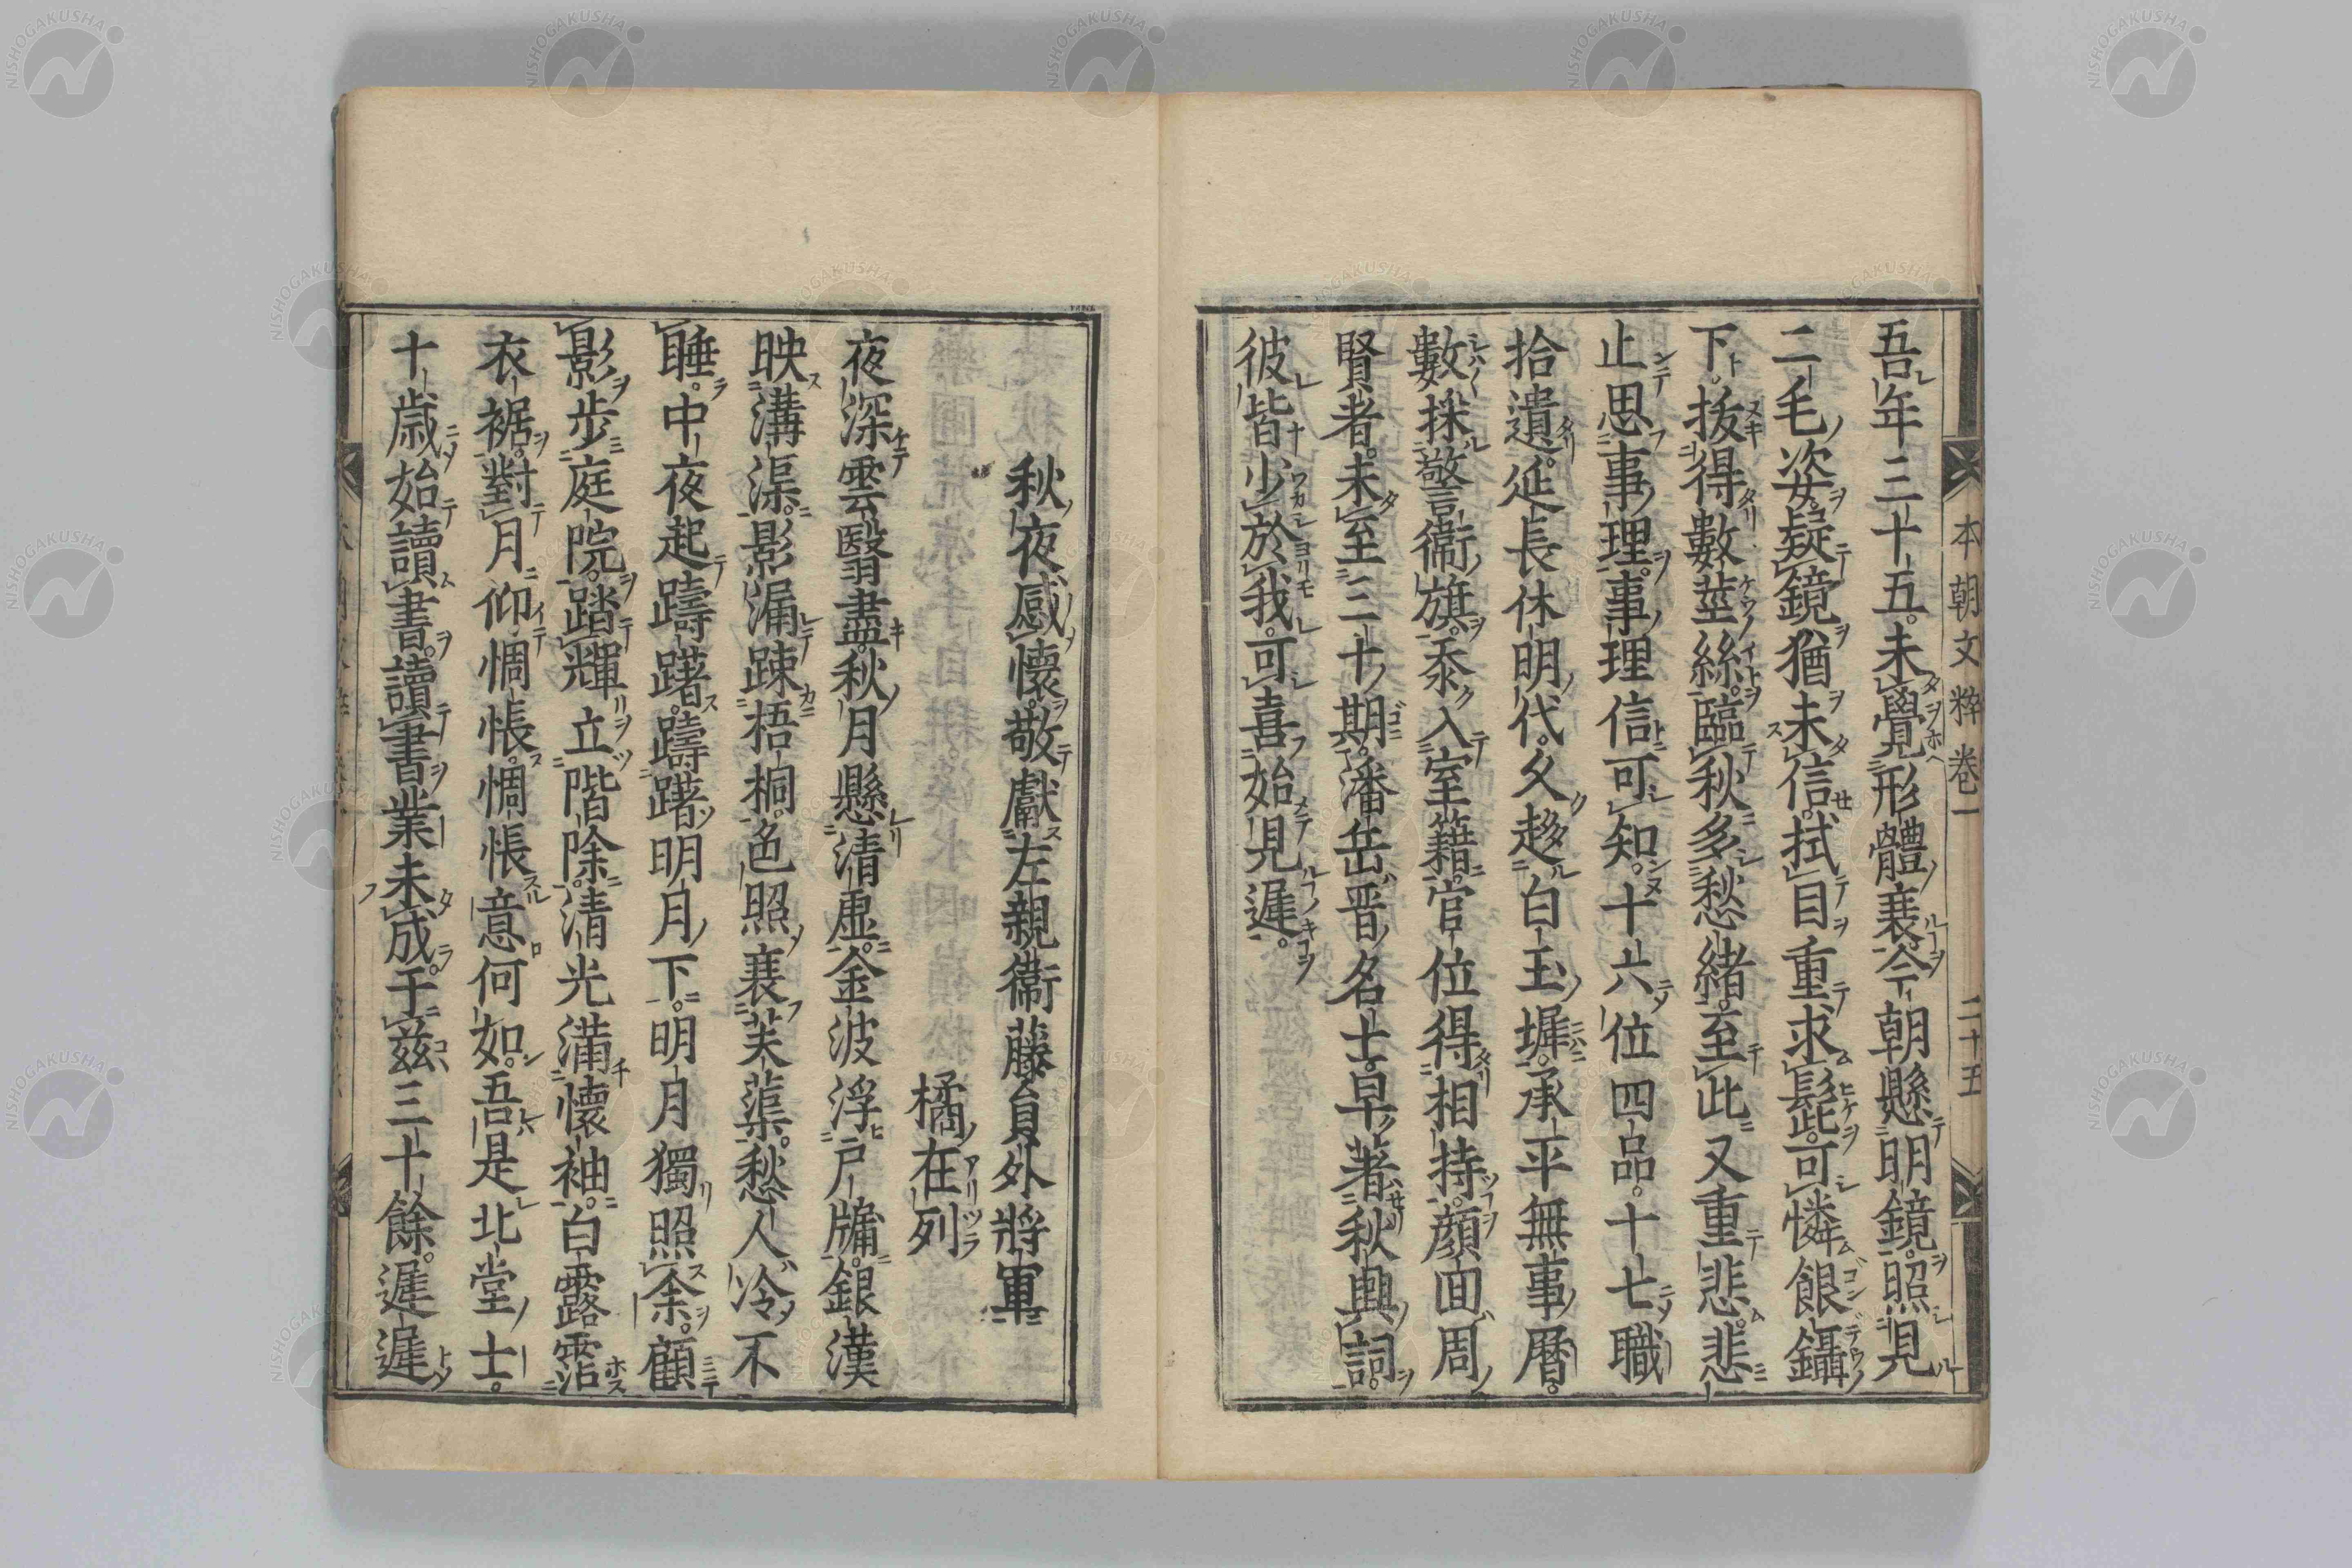 本朝文粹卷一 二十五
吾年三十五。未覺形體衰。今朝懸明鏡。照見
二毛姿。疑鏡猶未信。拭目重求髭。可憐銀鑷
下。拔得數莖絲。臨秋多愁緒。至此又重悲。悲
止思事理。事理信可知。十六位四品。十七職
拾遺。延長休明代。久趍白玉墀。承平無事曆。
數採警衞旗。忝入室籍。官位得相持。顔面周
賢者。未至三十期。潘岳晋名士。早著秋興詞。
彼皆少於我。可喜始見遲。
秋夜感懷。敬獻左親衞藤員外將軍
橘在列
夜深雲翳盡。秋月懸清虛。金波浮戸牖。銀漢
映溝渠。影漏踈梧桐。色照衰芙蕖。愁人冷不
睡。中夜起躊躇。躊躇明月下。明月獨照余。顧
影步庭院。踏輝立階除。清光滿懷袖。白露霑
衣裾。對月仰惆悵。惆悵意何如。吾是北堂士。
十歳始讀書。讀書業未成。于兹三十餘。遲遲
NISHOGAKUSHA